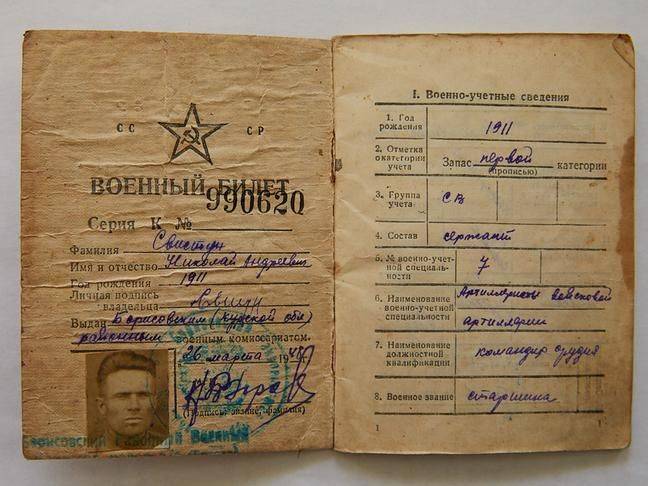 СС СР
ВОЕННЫЙ БИЛЕТ
Серия К № 990620
Фамилия Свистун
Имя и отчество Николай Андреевич
Год рождения 1911
Личная подпись
владельца
Выдан Борисовским (Курской обл)
районным военным комиссариатом.
26 марта 1948
(Подпись, звание, фамилия)
Борисовский Районный Военный
I. Военно-учетные сведения
1. Год
рождения 1911
2. Отметка
о категории
учета Запас первой категории
(прописью)
3. Группа
учета СВ
4. Состав сержант
5. № военно-учет-
ной специаль-
ности 7
6. Наименование
военно-учетной
специальности Артиллеристы войсковой
артиллерии
7. Наименование
должностной
квалификации командир орудия
8. Военное звание старшина
1